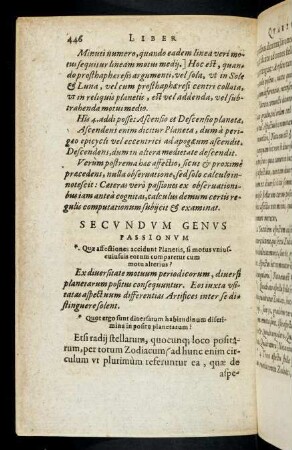 446 LIBER
Minuti numero, quando eadem linea veri mo-
tus sequitur lineam motus medij.] Hoc est, quando
prosthaphæresis argumenti, vel sola, vt in Sole
& Luna, vel cum prosthaphæresi centri collata,
vt in reliquis planetis, est vel addenda, vel sub-
trahenda motui medio.
His 4. addi posset Ascensio et Descensio planetæ.
Ascendens enim dicitur Planeta, dum à peri-
geo epicycli vel eccentrici ad apogæum ascendit.
Descendens, dum in altera medietate descendit.
Verùm postrema hæc affectio, sicut & proximè
præcedens, nulla obseruatione, sed solo calculo in-
notescit: Cæteras verò passiones ex obseruationi-
bus iam anteà cognitas, calculus demum certis re-
gulis computationum subijcit & examinat.
SECVNDVM GENVS
PASSIONVM
* Quæ affectiones accidunt Planetis, si motus vnius-
cuiusuis eorum comparetur cum
motu alterius?
Ex diuersitate motuum periodicorum, diuersi
planetarum positus consequuntur. Eas iuxta vsi-
tatas aspectuum differentias Artifices inter se di-
stinguere solent.
* Quot ergo sunt diuersarum habitudinum discri-
mina in positu planetarum?
Etsi radij stellarum, quocunq; loco positâ-
rum, per totum Zodiacum / ad hunc enim cir-
culum vt plurimùm referuntur ea, quæ de
aspe-